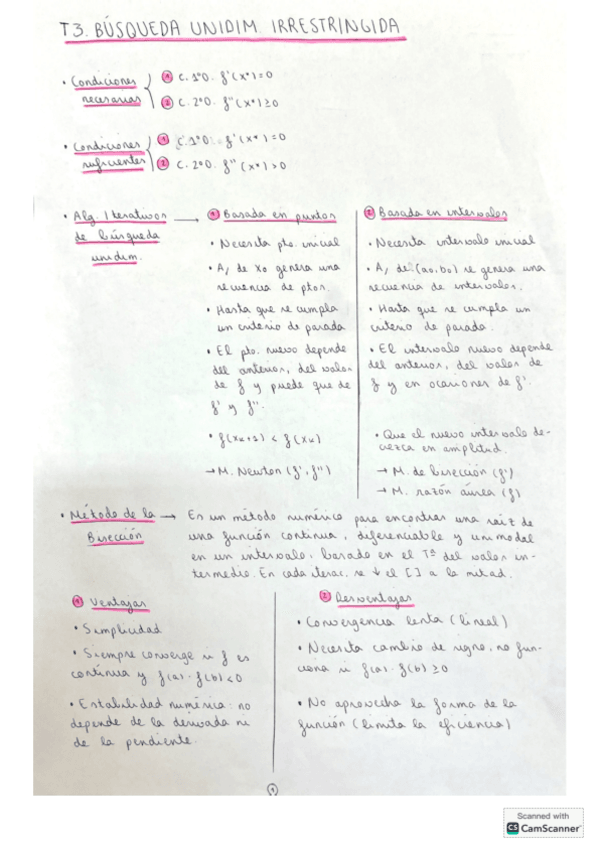 T3. BÚSQUEDA UNIDIM. IRRESTRINGIDA
• Condiciones necesarias
① C. 1ºO. f'(x*)=0
② C. 2ºO. f''(x*)≥0
• Condiciones suficientes
① C. 1ºO. f'(x*)=0
② C. 2ºO. f''(x*)>0
• Alg. Iterativos
de búsqueda
unidim.
→ ① Basada en puntos
• Necesita pto. inicial
• A/ de x0 genera una
secuencia de ptos.
• Hasta que se cumpla
un criterio de parada
• El pto. nuevo depende
del anterior, del valor
de f y puede que de
f' y f''.
• f(xk+1) < f(xk)
→ M. Newton (f', f'')
② Basada en intervalos
• Necesita intervalo inicial
• A/ de (a0, b0) se genera una
secuencia de intervalos.
• Hasta que se cumpla un
criterio de parada.
• El intervalo nuevo depende
del anterior, del valor de
f y en ocasiones de f'.
• Que el nuevo intervalo de-
crezca en amplitud.
→ M. de bisección (f')
→ M. razón áurea (f)
• Método de la
Bisección
→ Es un método numérico para encontrar una raíz de
una función continua, diferenciable y unimodal
en un intervalo, basado en el Tª del valor in-
termedio. En cada iterac. se ↓ el [ ] a la mitad.
① Ventajas
• Simplicidad
• Siempre converge si f es
continua y f(a)·f(b)<0
• Estabilidad numérica: no
depende de la derivada ni
de la pendiente.
② Desventajas
• Convergencia lenta (lineal)
• Necesita cambio de signo, no fun-
ciona si f(a)·f(b)≥0
• No aprovecha la forma de la
función (limita la eficiencia)
①
Scanned with
CS CamScanner